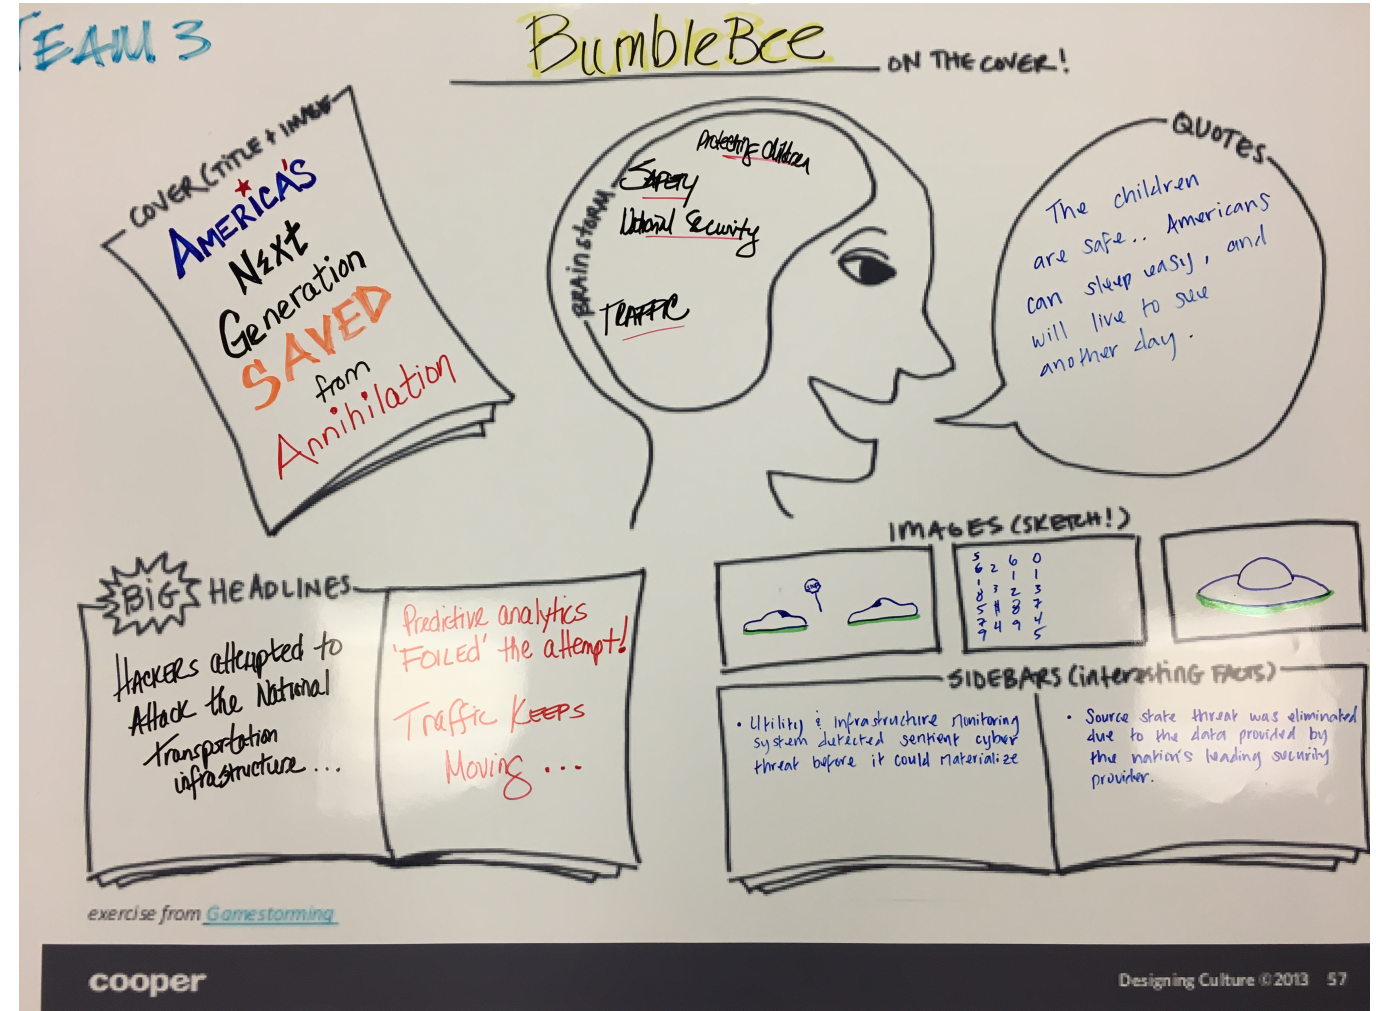 TEAM 3
BumbleBee
ON THE COVER!
COVER (TITLE + IMAGE
AMERICA'S
NExt
Generation
SAVED
from
Annihilation
BRAINSTORM
Protecting children
SAFETY
National Security
TRAFFIC
QUOTES
The children
are safe.. Americans
can sleep easy, and
will live to see
another day.
BIG HEADLINES
HACKERS attempted to
Attack the National
Transportation
infrastructure ...
Predictive analytics
'FOILED' the attempt!
Traffic KEEPS
Moving ...
IMAGES (SKETCH!)
5 6 0
6 2 1 1
1 3 2 3
8 8 7
5 4 9 4
7 5
9
SIDEBARS (interesting FACTS)
• Utility & Infrastructure Monitoring
system detected sentient cyber
threat before it could materialize
• Source state threat was eliminated
due to the data provided by
the nation's leading security
provider.
exercise from Gamestorming
cooper
Designing Culture ©2013 57